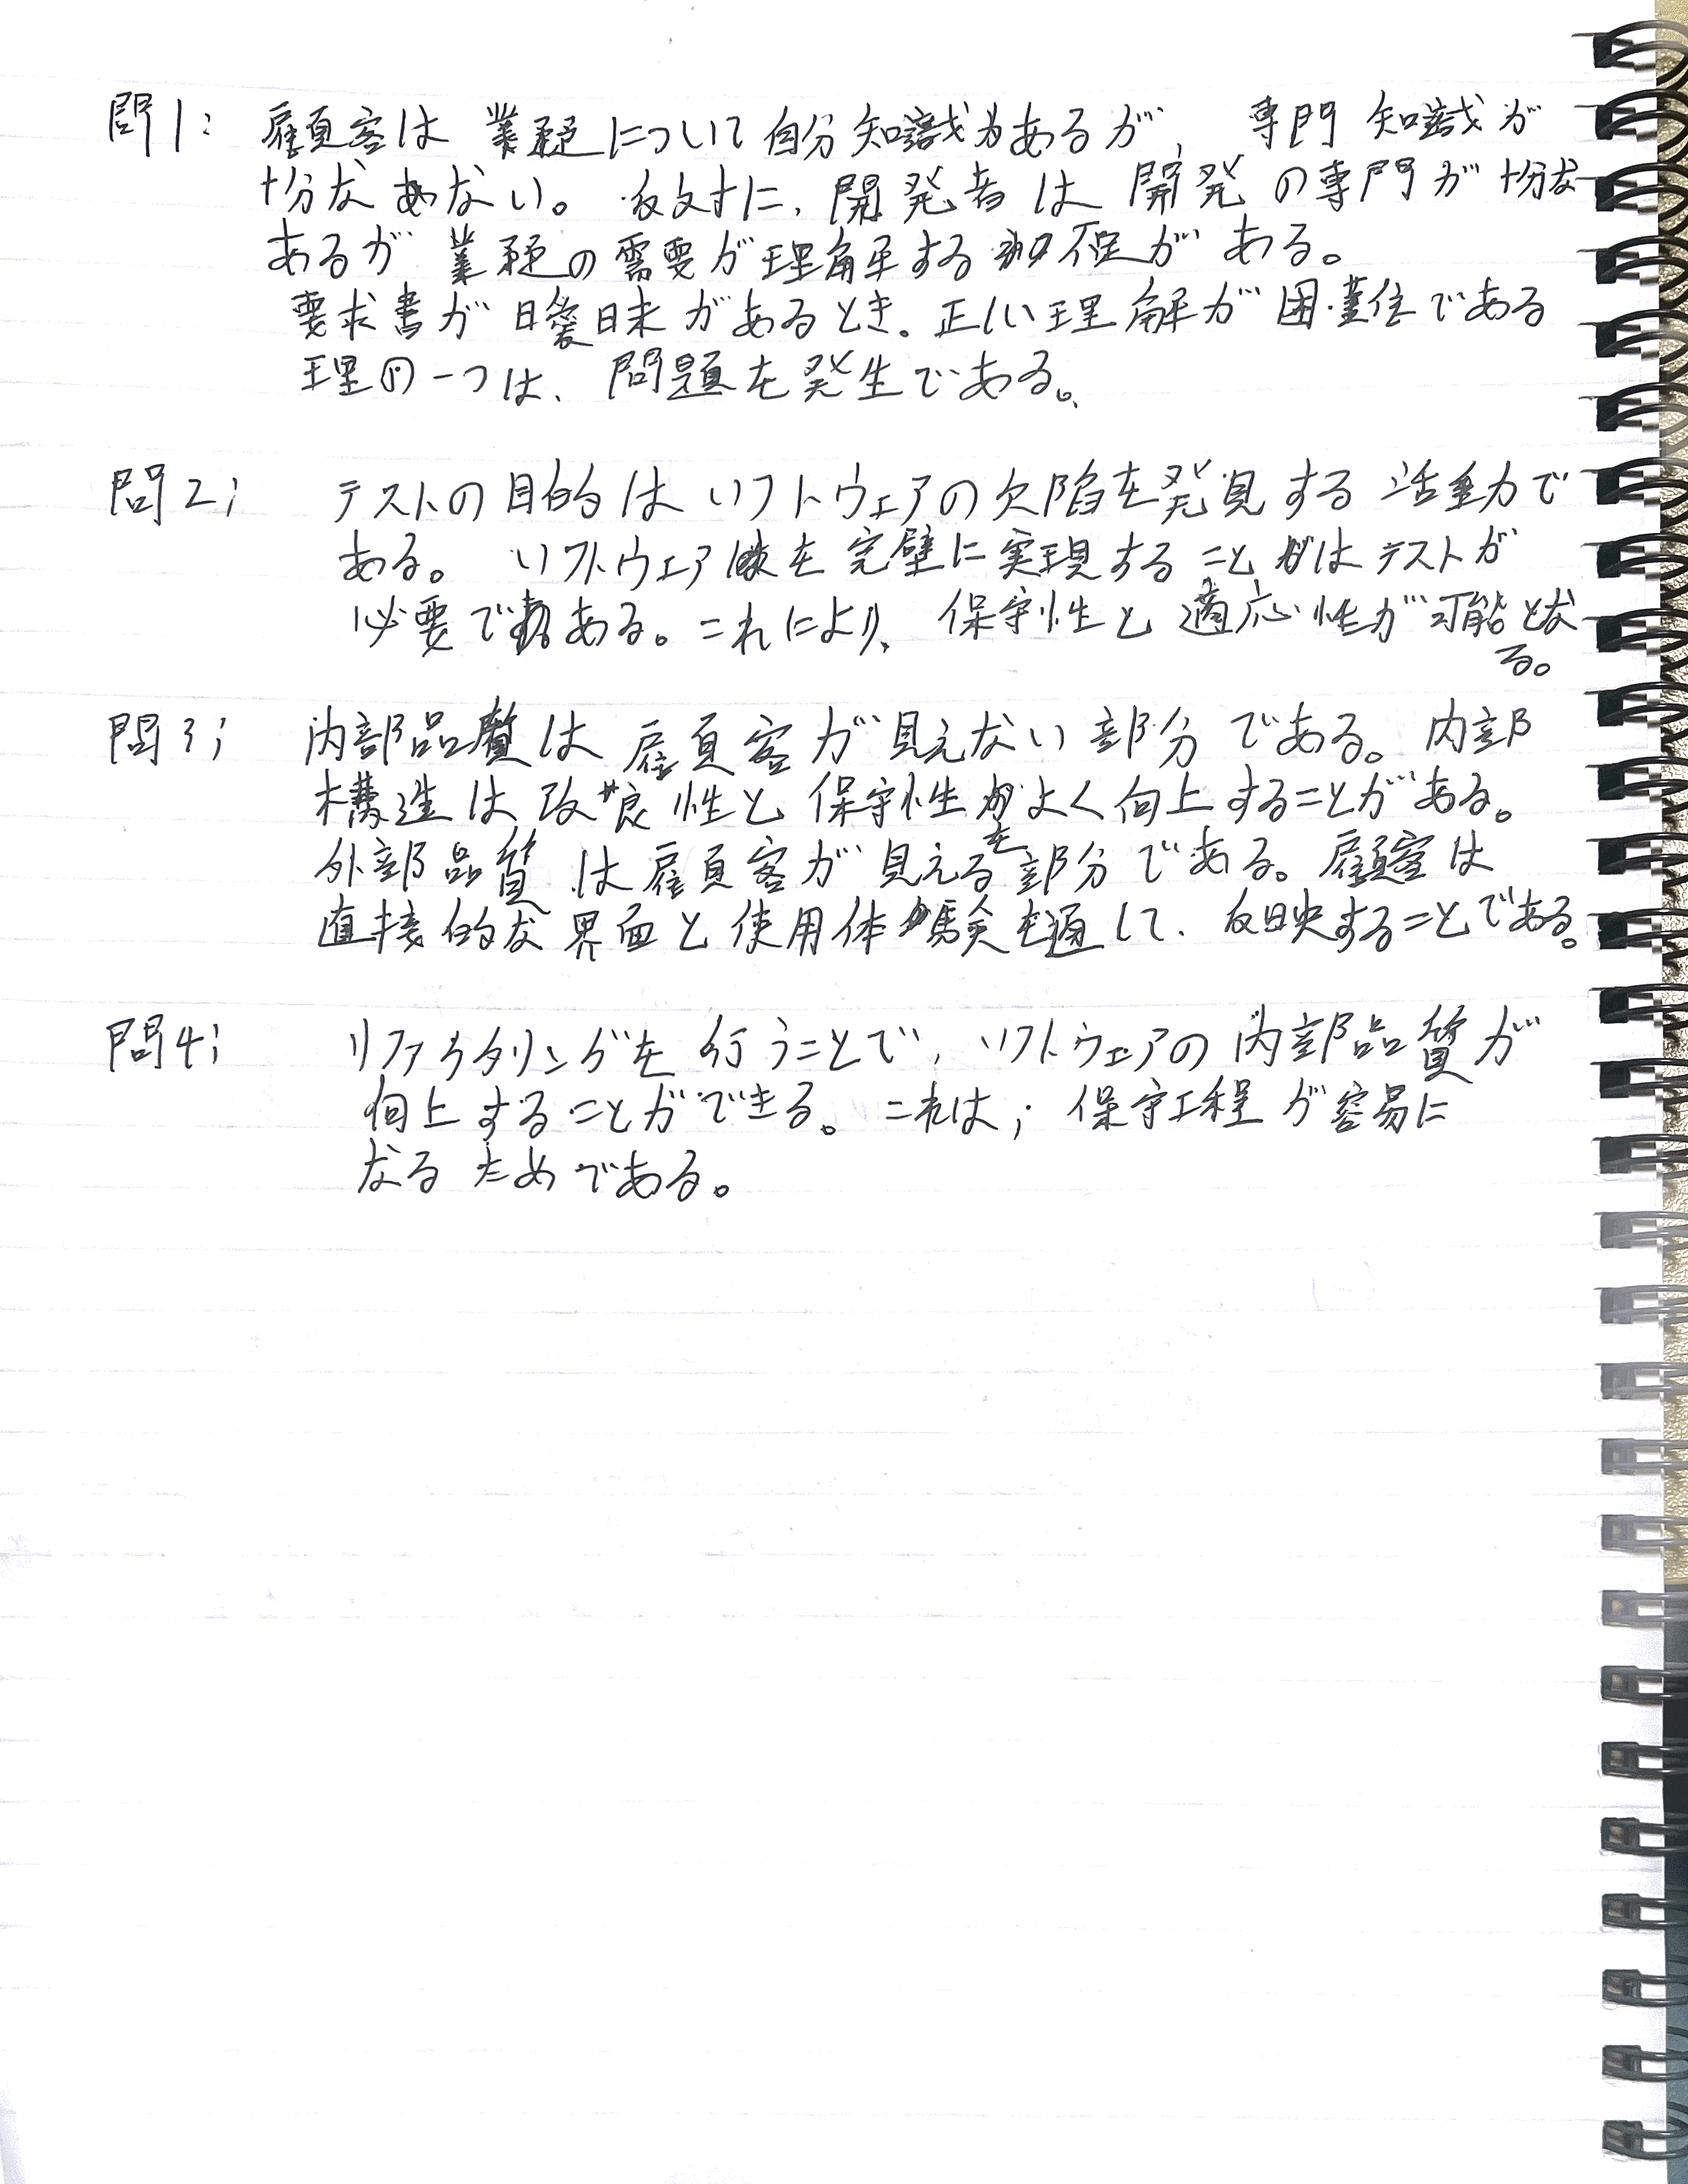 問1: 顧客は 業務について自分知識があるが、専門知識が
十分なない。反対に、開発者は開発の専門が十分な
あるが 業務の需要が理解する不足がある。
要求書が曖昧があるとき。正しい理解が困難である
理由の一つは、問題を発生である。
問2; テストの目的はソフトウェアの欠陥を発見する活動で
ある。ソフトウェアを完璧に実現することはテストが
必要である。これにより、保守性と適応性が可能とな
る。
問3; 内部品質は顧客が見えない部分である。内部
構造は改良性と保守性がよく向上することがある。
外部品質は顧客が見える部分である。顧客は
直接的な界面と使用体験を通して、反映することである。
問4; リファクタリングを行うことで、ソフトウェアの内部品質が
向上することができる。これは; 保守工程が容易に
なるためである。